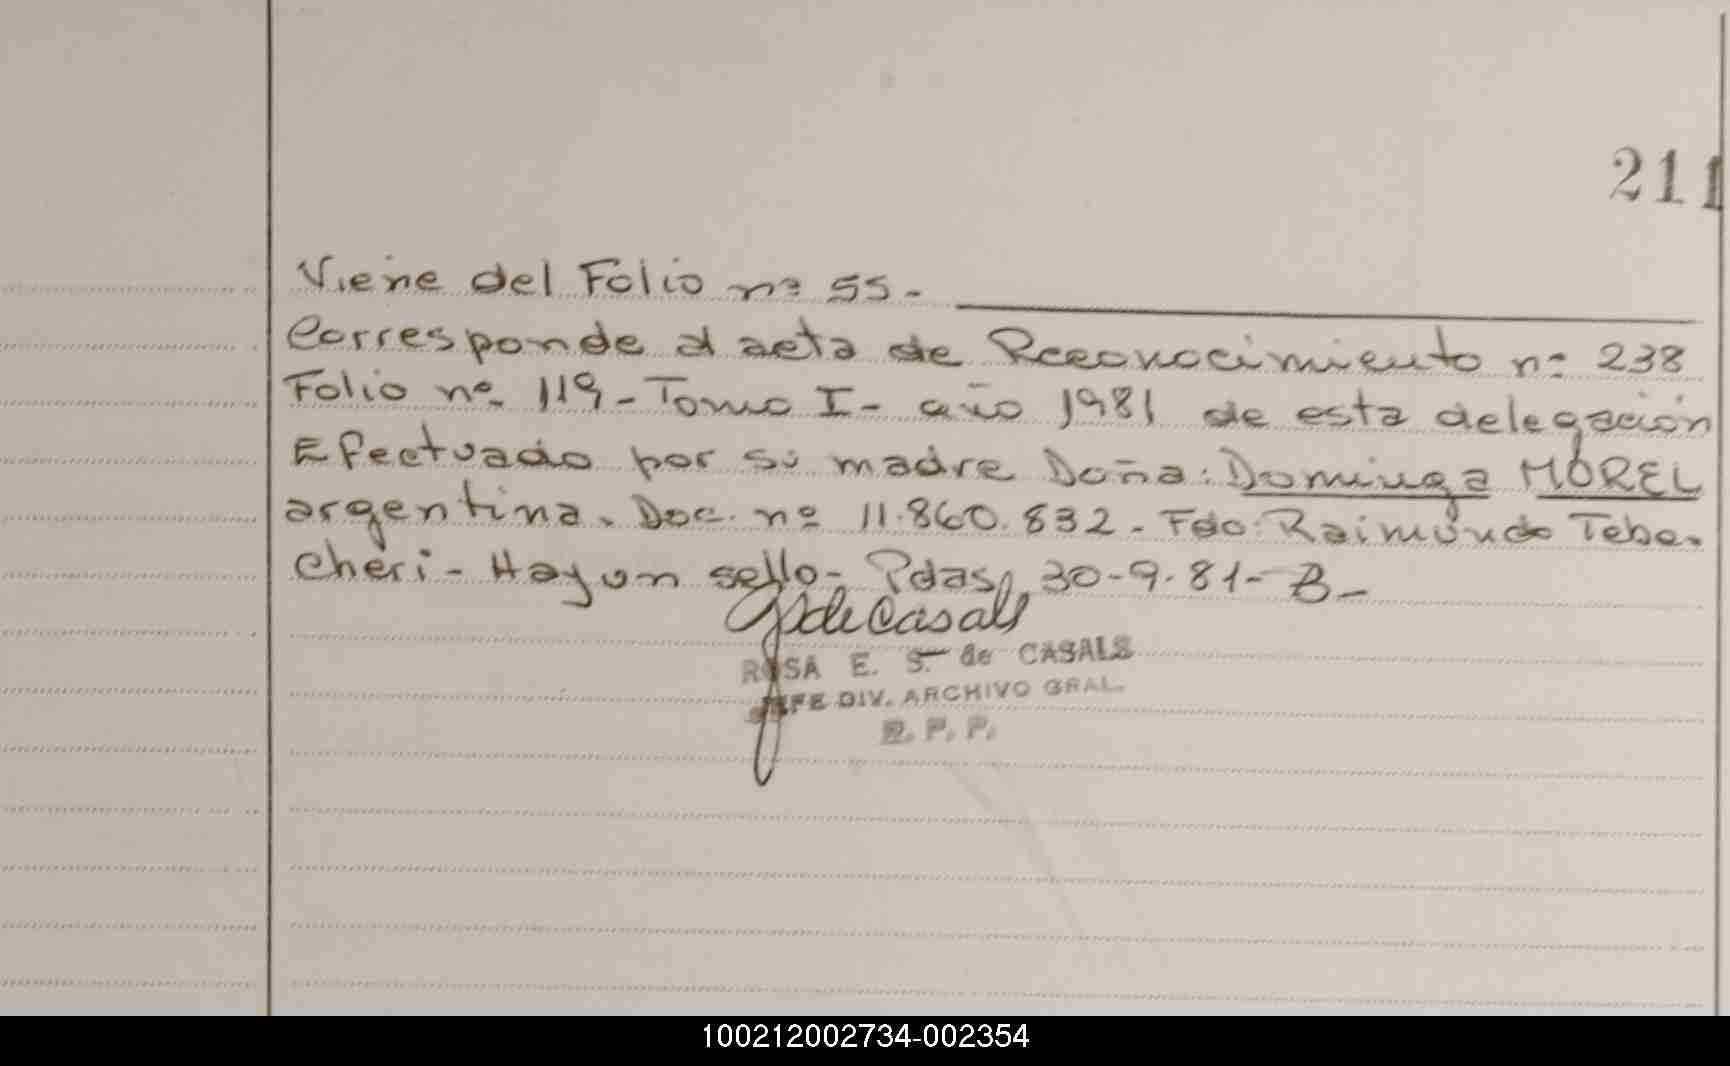 211
Viene del Folio nº 55.
Corresponde al acta de Reconocimiento nº 238
Folio nº 119 - Tomo I - año 1981 de esta delegación
Efectuado por su madre Doña: Dominga MOREL
argentina. Doc. nº 11.860.832 - Fdo: Raimundo Tebe-
cheri - Hay un sello - Pdas, 30-9-81- B -
de Casals
ROSA E. S. de CASALS
JEFE DIV. ARCHIVO GRAL.
R. P. P.
100212002734-002354